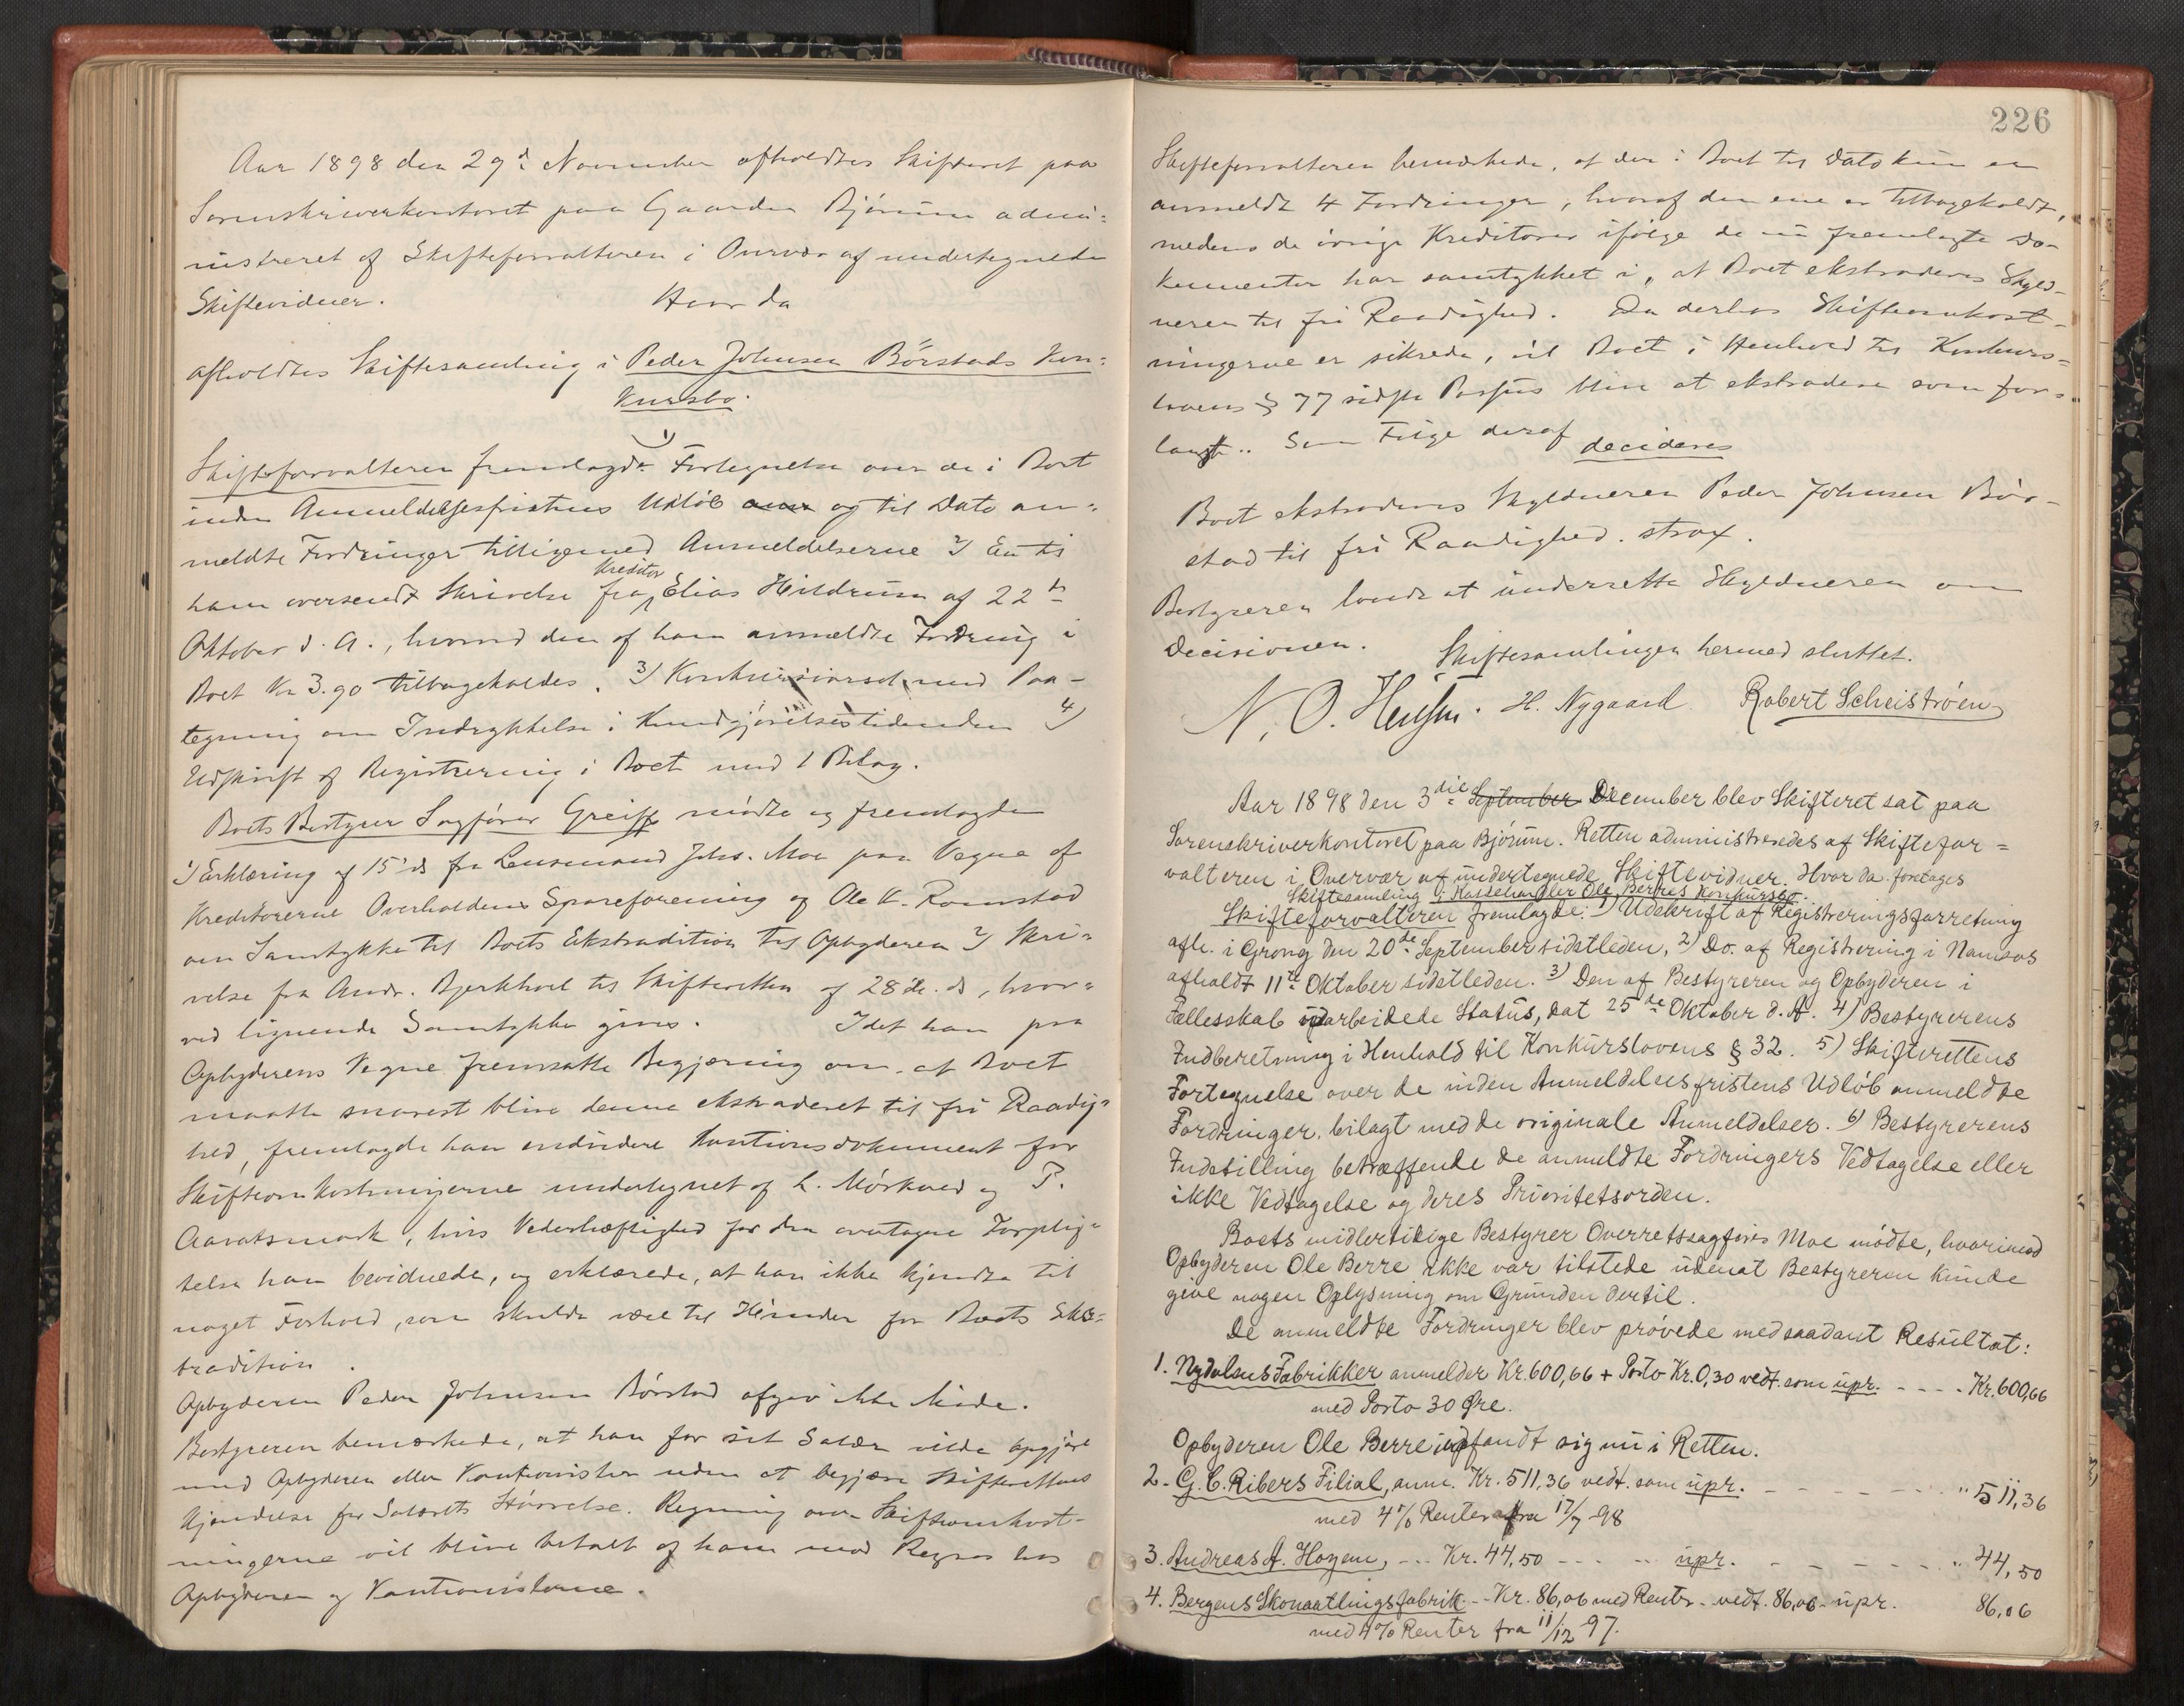 Aar 1898 den 29de November afholdtes Skifteret paa
Sorenskriverkontoret paa Gaarden Bjørum admi=
nistreret af Skifteforvalteren i Overvær af undertegnede
Skiftevidner. Hvor da
afholdtes Skiftesamling i Peder Johnsen Børstads Kon=
kursbo.
Skifteforvalteren fremlagde 1) Fortegnelse over de i Boet
inden Anmeldelsesfristens Udløb og til Dato an=
meldte Fordringer tilligemed Anmeldelserne 2) En til
ham oversendt Skrivelse fra Kreditor Elias Hildrum af 22de
Oktober d. A., hvorved den af ham anmeldte Fordring i
Boet Kr 3.90 tilbagekaldes. 3) Konkursinnsel med Paa-
tegning om Indrykkelse i Kundgjørelsestidenden 4)
Udskrift af Registrering i Boet med 1 Bilag.
Boets Bestyrer Sagfører Greiff mødte og fremlagde
1) Erklæring af 15' ds fra Lensmand Johs. Moe paa Vegne af
Kreditorerne Overhaldens Spareforening og Ole K. Ramstad
om Samtykke til Boets Ekstradition til Opbyderen 2) Skri=
velse fra Andr. Bjerkhoel til Skifteretten af 28de ds, hvor=
ved lignende Samtykke gives. Idet han paa
Opbyderens Vegne fremsatte Begjæring om, at Boet
maatte snarest blive denne ekstraderet til fri Raadig=
hed, fremlagde han endvidere Kautionsdokument for
Skifteomkostningerne undertegnet af L. Mørkved og P.
Aavatsmark, hvis Vederhæftighed for den overtagne Forplig=
telse han bevidnede, og erklærede, at han ikke kjendte til
noget Forhold, som skulde være til Hinder for Boets Eks=
tradition.
Opbyderen Peder Johnsen Børstad afgav ikke Møde.
Bestyreren bemærkede, at han for sit Salær vilde opgjøre
med Opbyderen eller Kautionisten uden at begjære Skifterettens
Kjendelse for Salærets Størrelse. Regning over Skifteomkost-
ningerne vil blive betalt af ham mod Regres hos
Opbyderen og Kautionisterne.
226
Skifteforvalteren bemærkede, at der i Boet til Dato kun er
anmeldt 4 Fordringer, hvoraf den ene er tilbagekaldt,
medens de øvrige Kreditorer ifølge de nu fremlagte Do-
kumenter har samtykket i, at Boet ekstraderes Skyld-
neren til fri Raadighed. Da derhos Skifteomkost-
ningerne er sikrede, vil Boet i Henhold til Konkurs=
lovens § 77 sidste Passus blive at ekstradere som for=
langt. Som Følge deraf decideres
Boet ekstraderes Skyldneren Peder Johnsen Bør-
stad til fri Raadighed strax.
Bestyreren lovede at underrette Skyldneren om
Decisionen. Skiftesamlingen hermed sluttet.
N. O. Hensen. H. Nygaard Robert Scheistrøen
Aar 1898 den 3die September December blev Skifteret sat paa
Sorenskriverkontoret paa Bjørum. Retten administreredes af Skiftefor=
valteren i Overvær af undertegnede Skiftevidner. Hvor da foretages
Skiftesamling i Kassehandler Ole Berres Konkursbo.
Skifteforvalteren fremlagde: 1) Udskrift af Registreringsforretning
afh. i Grong den 20de September sidstleden, 2) Do. af Registrering i Namsos
afholdt 11te Oktober sidstleden. 3) Den af Bestyreren og Opbyderen i
Fællesskab udarbeidede Status, dat 25de Oktober d. A. 4) Bestyrerens
Indberetning i Henhold til Konkurslovens § 32. 5) Skifterettens
Fortegnelse over de inden Anmeldelsesfristens Udløb anmeldte
Fordringer, bilagt med de originale Anmeldelser. 6) Bestyrerens
Indstilling betræffende de anmeldte Fordringers Vedtagelse eller
ikke Vedtagelse og deres Prioritetsorden.
Boets midlertidige Bestyrer Overretssagfører Moe mødte, hvorimod
Opbyderen Ole Berre ikke var tilstede uden at Bestyreren kunde
give nogen Oplysning om Grunden dertil.
De anmeldte Fordringer blev prøvede med saadant Resultat:
1. Nydalens Fabrikker anmelder Kr. 600,66 + Porto Kr. 0,30 vedt. som upr. - - - - Kr. 600,66
med Porto 30 Øre.
Opbyderen Ole Berre indfandt sig nu i Retten.
2. G. C. Ribers Filial, anm. Kr. 511,36 vedt. som upr. - - - - - - " 511,36
med 4% Renter fra 17/7 -98
3. Andreas A. Hozem, - - Kr. 44,50 - - - - upr. - - - - - " 44,50
4. Bergens Skomaatlingsfabrik - - Kr. 86,06 med Renter - vedt. 86,06 - upr. 86,06
med 4% Renter fra 11/12 97.